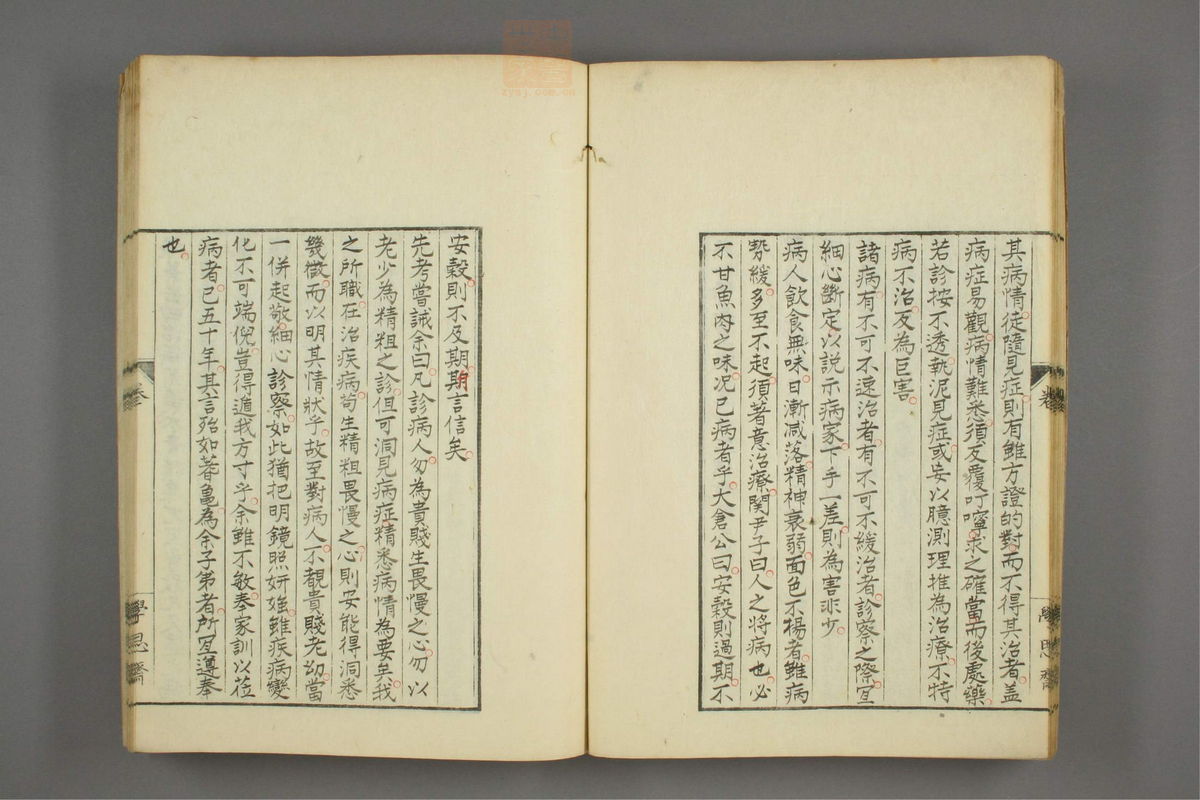 其病情徒隨見症則有雖方證的對而不得其治者蓋
病症易觀病情難悉須反覆叮嚀求之確當而後處藥
若診按不透執泥見症或妄以臆測理推為治療不特
病不治反為巨害
諸病有不可不速治者有不可不緩治者診察之際宜
細心斷定以說示病家下手一差則為害非少
病人飲食無味日漸減落精神衰弱面色不揚者雖病
勢緩多至不起須著意治療関尹子曰人之將病也必
不甘魚肉之味况已病者乎大倉公曰安穀則過期不
安穀則不及期期言信矣
先考嘗誡余曰凡診病人勿為貴賤生畏慢之心勿以
老少為精粗之診但可洞見病症精悉病情為要矣我
之所職在治疾病苟生精粗畏慢之心則安能得洞悉
幾微而以明其情狀乎故至對病人不覩貴賤老幼當
一併起敬細心診察如此猶把明鏡照妍媸雖疾病變
化不可端倪豈得遁我方寸乎余雖不敏奉家訓以莅
病者已五十年其言殆如蓍龜為余子弟者所宜遵奉
也
卷
學思齋
zysj.com.cn